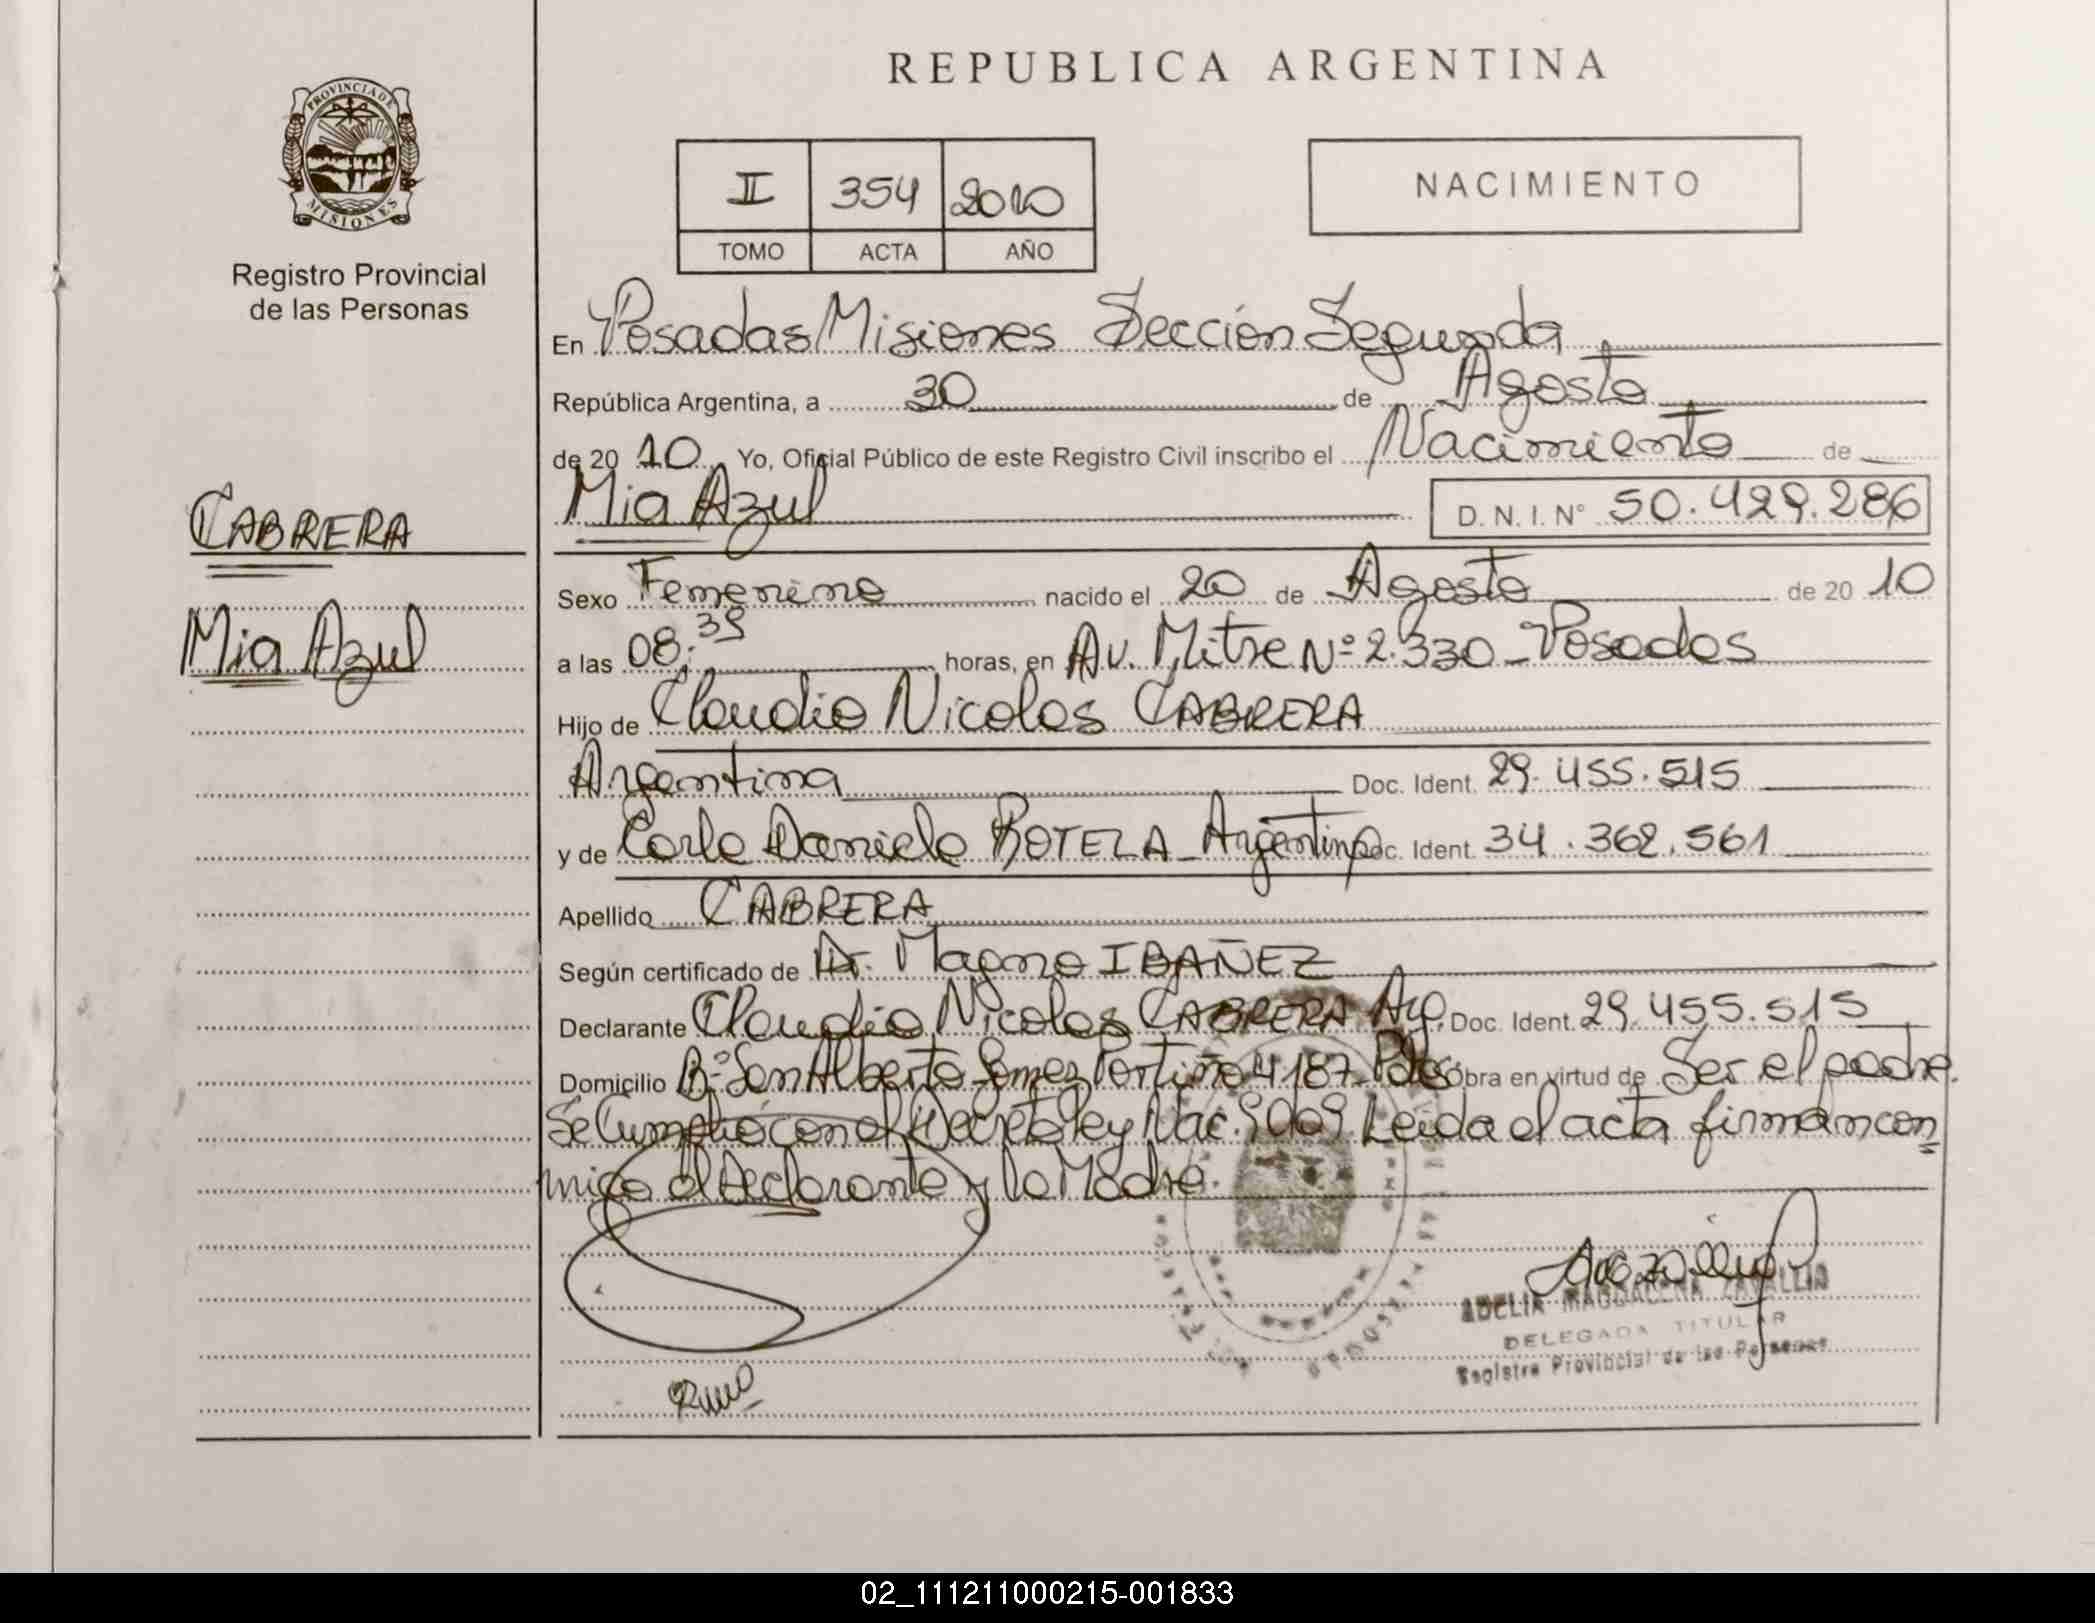 REPUBLICA ARGENTINA
PROVINCIA DE
MISIONES
Registro Provincial
de las Personas
II 354 2010
TOMO ACTA AÑO
NACIMIENTO
En Posadas Misiones Sección Segunda
República Argentina, a 30 de Agosto
de 20 10 Yo, Oficial Público de este Registro Civil inscribo el Nacimiento de
Mia Azul D. N. I. N° 50.429.286
CABRERA
Mia Azul
Sexo Femenino nacido el 20 de Agosto de 20 10
a las 08:35 horas, en Av. Mitre Nº 2.330 - Posadas
Hijo de Claudio Nicolas CABRERA
Argentina Doc. Ident. 29.455.515
y de Carla Daniela ROTELA - Argentina Doc. Ident. 34.362.561
Apellido CABRERA
Según certificado de Dr. Magno IBAÑEZ
Declarante Claudio Nicolas CABRERA Arg. Doc. Ident. 29.455.515
Domicilio Bº San Alberto Gomez Portiño 4187 - Pdas Obra en virtud de Ser el padre.
Se Cumplió con el Decreto Ley Nac. 9009. Leida el acta firman con
migo el Declarante y la Madre.
ADELIA MAGDALENA ZAVALLIA
DELEGADA TITULAR
Registro Provincial de las Personas
02_111211000215-001833